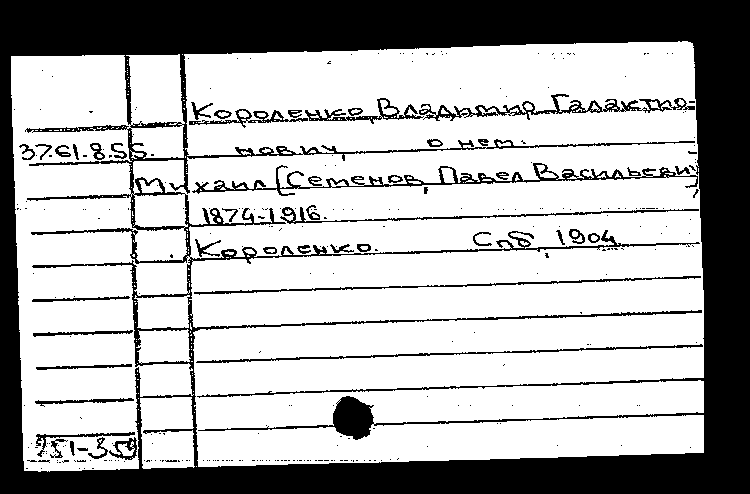 Короленко, Владимир Галактио-
37.61.8.55. нович, о нем.
Михаил [Семенов, Павел Васильевич]
1874-1916.
Короленко. Спб, 1904
251-359